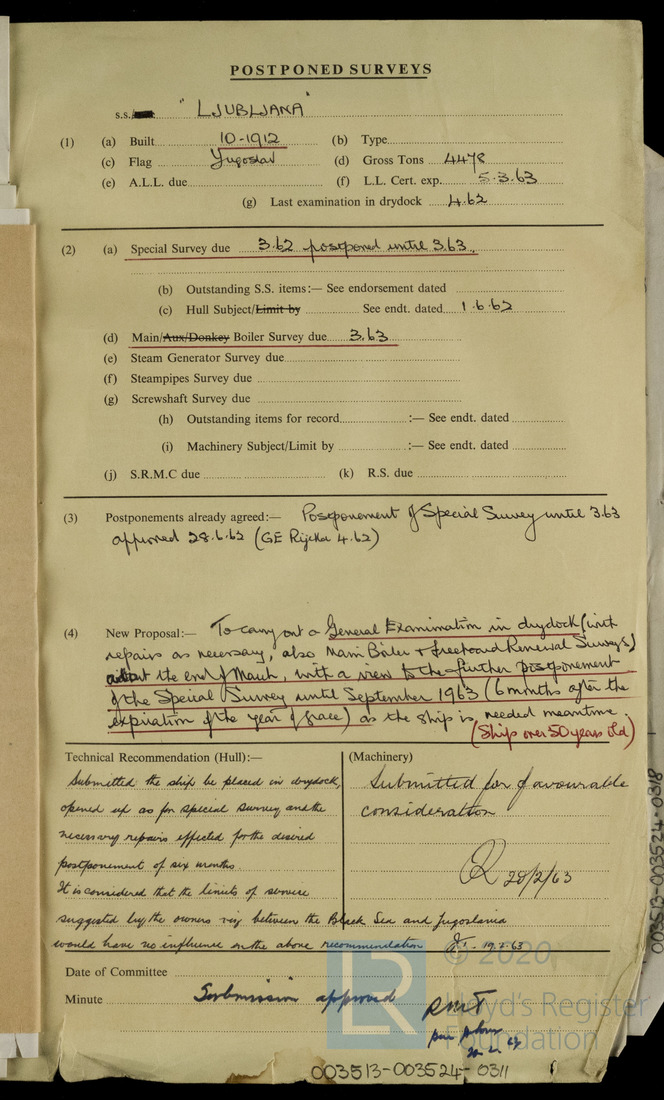 POSTPONED SURVEYS
s.s. "LJUBLJANA"
(1) (a) Built 10-1912 (b) Type
(c) Flag Yugoslav (d) Gross Tons 4478
(e) A.L.L. due (f) L.L. Cert. exp. 5.3.63
(g) Last examination in drydock 4.62
(2) (a) Special Survey due 3.62 postponed until 3.63.
(b) Outstanding S.S. items:— See endorsement dated
(c) Hull Subject/Limit by See endt. dated 1.6.62
(d) Main/Aux/Donkey Boiler Survey due 3.63
(e) Steam Generator Survey due
(f) Steampipes Survey due
(g) Screwshaft Survey due
(h) Outstanding items for record :— See endt. dated
(i) Machinery Subject/Limit by :— See endt. dated
(j) S.R.M.C due (k) R.S. due
(3) Postponements already agreed:— Postponement of Special Survey until 3.63
approved 28.6.62 (GE Rijeka 4.62)
(4) New Proposal:— To carry out a General Examination in drydock (with
repairs as necessary, also Main Boiler + freeboard Renewal Surveys)
at the end of March, with a view to the further postponement
of the Special Survey until September 1963 (6 months after the
expiration of the year of grace) as the ship is needed meantime.
(Ship over 50 years old)
Technical Recommendation (Hull):— (Machinery)
Submitted the ship be placed in drydock,
opened up as for special survey and the
necessary repairs effected for the desired
postponement of six months.
It is considered that the limits of service
suggested by the owners viz between the Black Sea and Jugoslavia
would have no influence on the above recommendation
Submitted for favourable
consideration
28/2/63
Date of Committee
Minute Submission approved
© 2020
Lloyd's Register
Foundation
LR
003513-003524-0311
003513-003524-0318